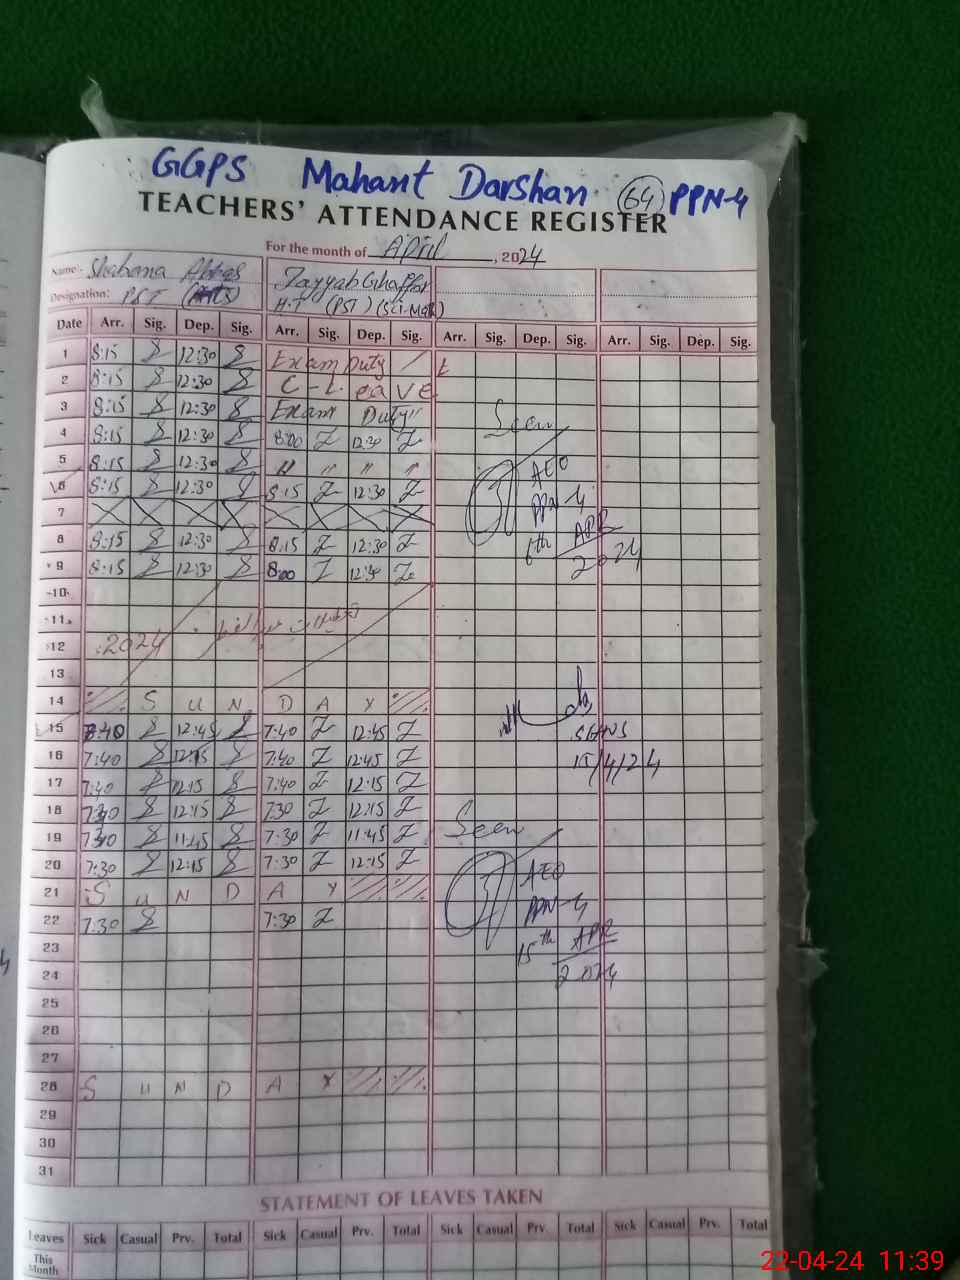 GGPS Mahant Darshan (64) PPN-4
TEACHERS' ATTENDANCE REGISTER
For the month of April, 2024
Name:- Shabana Abbas Zayyab Ghaffar
Designation: PST H.T (PST) (Sci-Math)
Date Arr. Sig. Dep. Sig. Arr. Sig. Dep. Sig. Arr. Sig. Dep. Sig. Arr. Sig. Dep. Sig.
1 8:15 12:30 Exam Duty
2 8:15 12:30 C-Leave
3 8:15 12:30 Exam Duty
4 8:15 12:30 8:00 Z 12:30 Z
5 8:15 12:30 " " " "
6 8:15 12:30 8:15 Z 12:30 Z
7
8 8:15 12:30 8:15 Z 12:30 Z
9 8:15 12:30 8:00 Z 12:30 Z
10
11
12 2024
13
14 S U N D A Y
15 7:40 12:45 7:40 Z 12:45 Z
16 7:40 12:15 7:40 Z 12:45 Z
17 7:40 12:15 7:40 Z 12:15 Z
18 12:15 7:30 Z 12:15 Z
19 11:45 7:30 Z 11:45 Z
20 7:30 12:15 7:30 Z 12:15 Z
21 S U N D A Y
22 7:30 7:30 Z
23
24
25
26
27
28 S U N D A Y
29
30
31
Seen
AEO
PPN-4
6th APR
2024
15/4/24
Seen
AEO
PPN-4
15th APR
2024
STATEMENT OF LEAVES TAKEN
Leaves Sick Casual Prv. Total Sick Casual Prv. Total Sick Casual Prv. Total Sick Casual Prv. Total
This Month
22-04-24 11:39